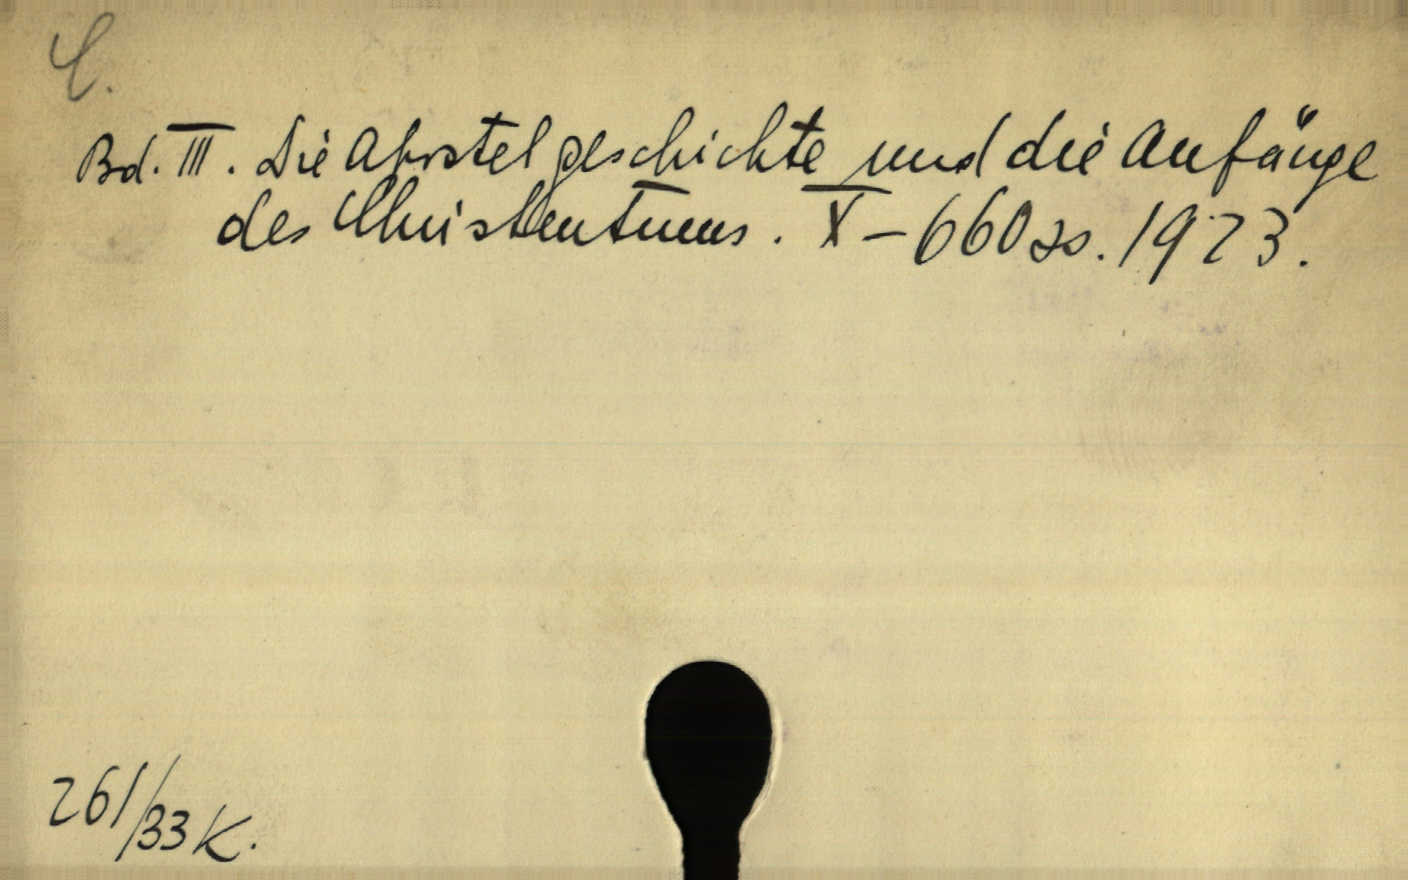 C.
Bd. III. Die Apostelgeschichte und die Anfänge
des Christentums. X – 660 ss. 1923.
261/33 K.